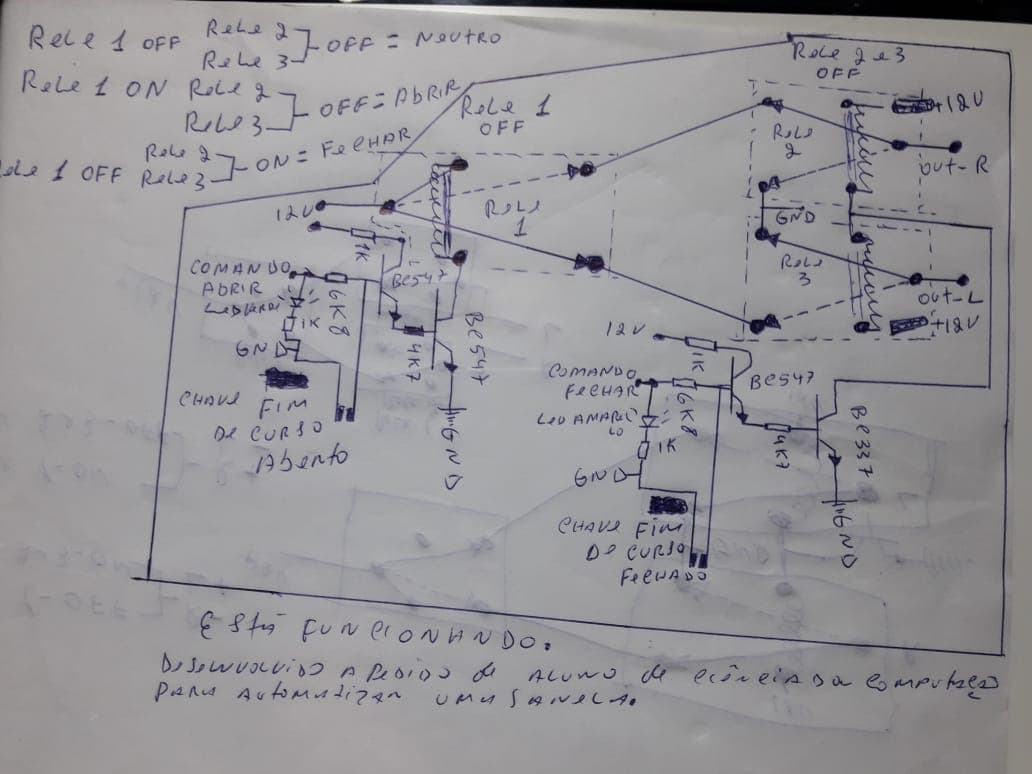 Rele 1 OFF Rele 2
Rele 3 OFF = Neutro
Rele 1 ON Rele 2
Rele 3 OFF = Abrir
Rele 1 OFF Rele 2
Rele 3 ON = Fechar
Rele 1
OFF
Rele 2 e 3
OFF
+12V
Rele
2
OUT-R
GND
Rele
3
OUT-L
+12V
12V
Rele
1
1K
COMANDO
ABRIR
6K8
BC547
1K
GND
4K7
BC547
CHAVE FIM
DE CURSO
Aberto
GND
12V
1K
COMANDO
FECHAR
6K8
BC547
LED AMAREL
LO
1K
4K7
BC337
GND
GND
CHAVE FIM
DE CURSO
FECHADO
ESTÁ FUNCIONANDO.
Desenvolvido a pedido de aluno de ciência da computação
para automatizar uma janela.